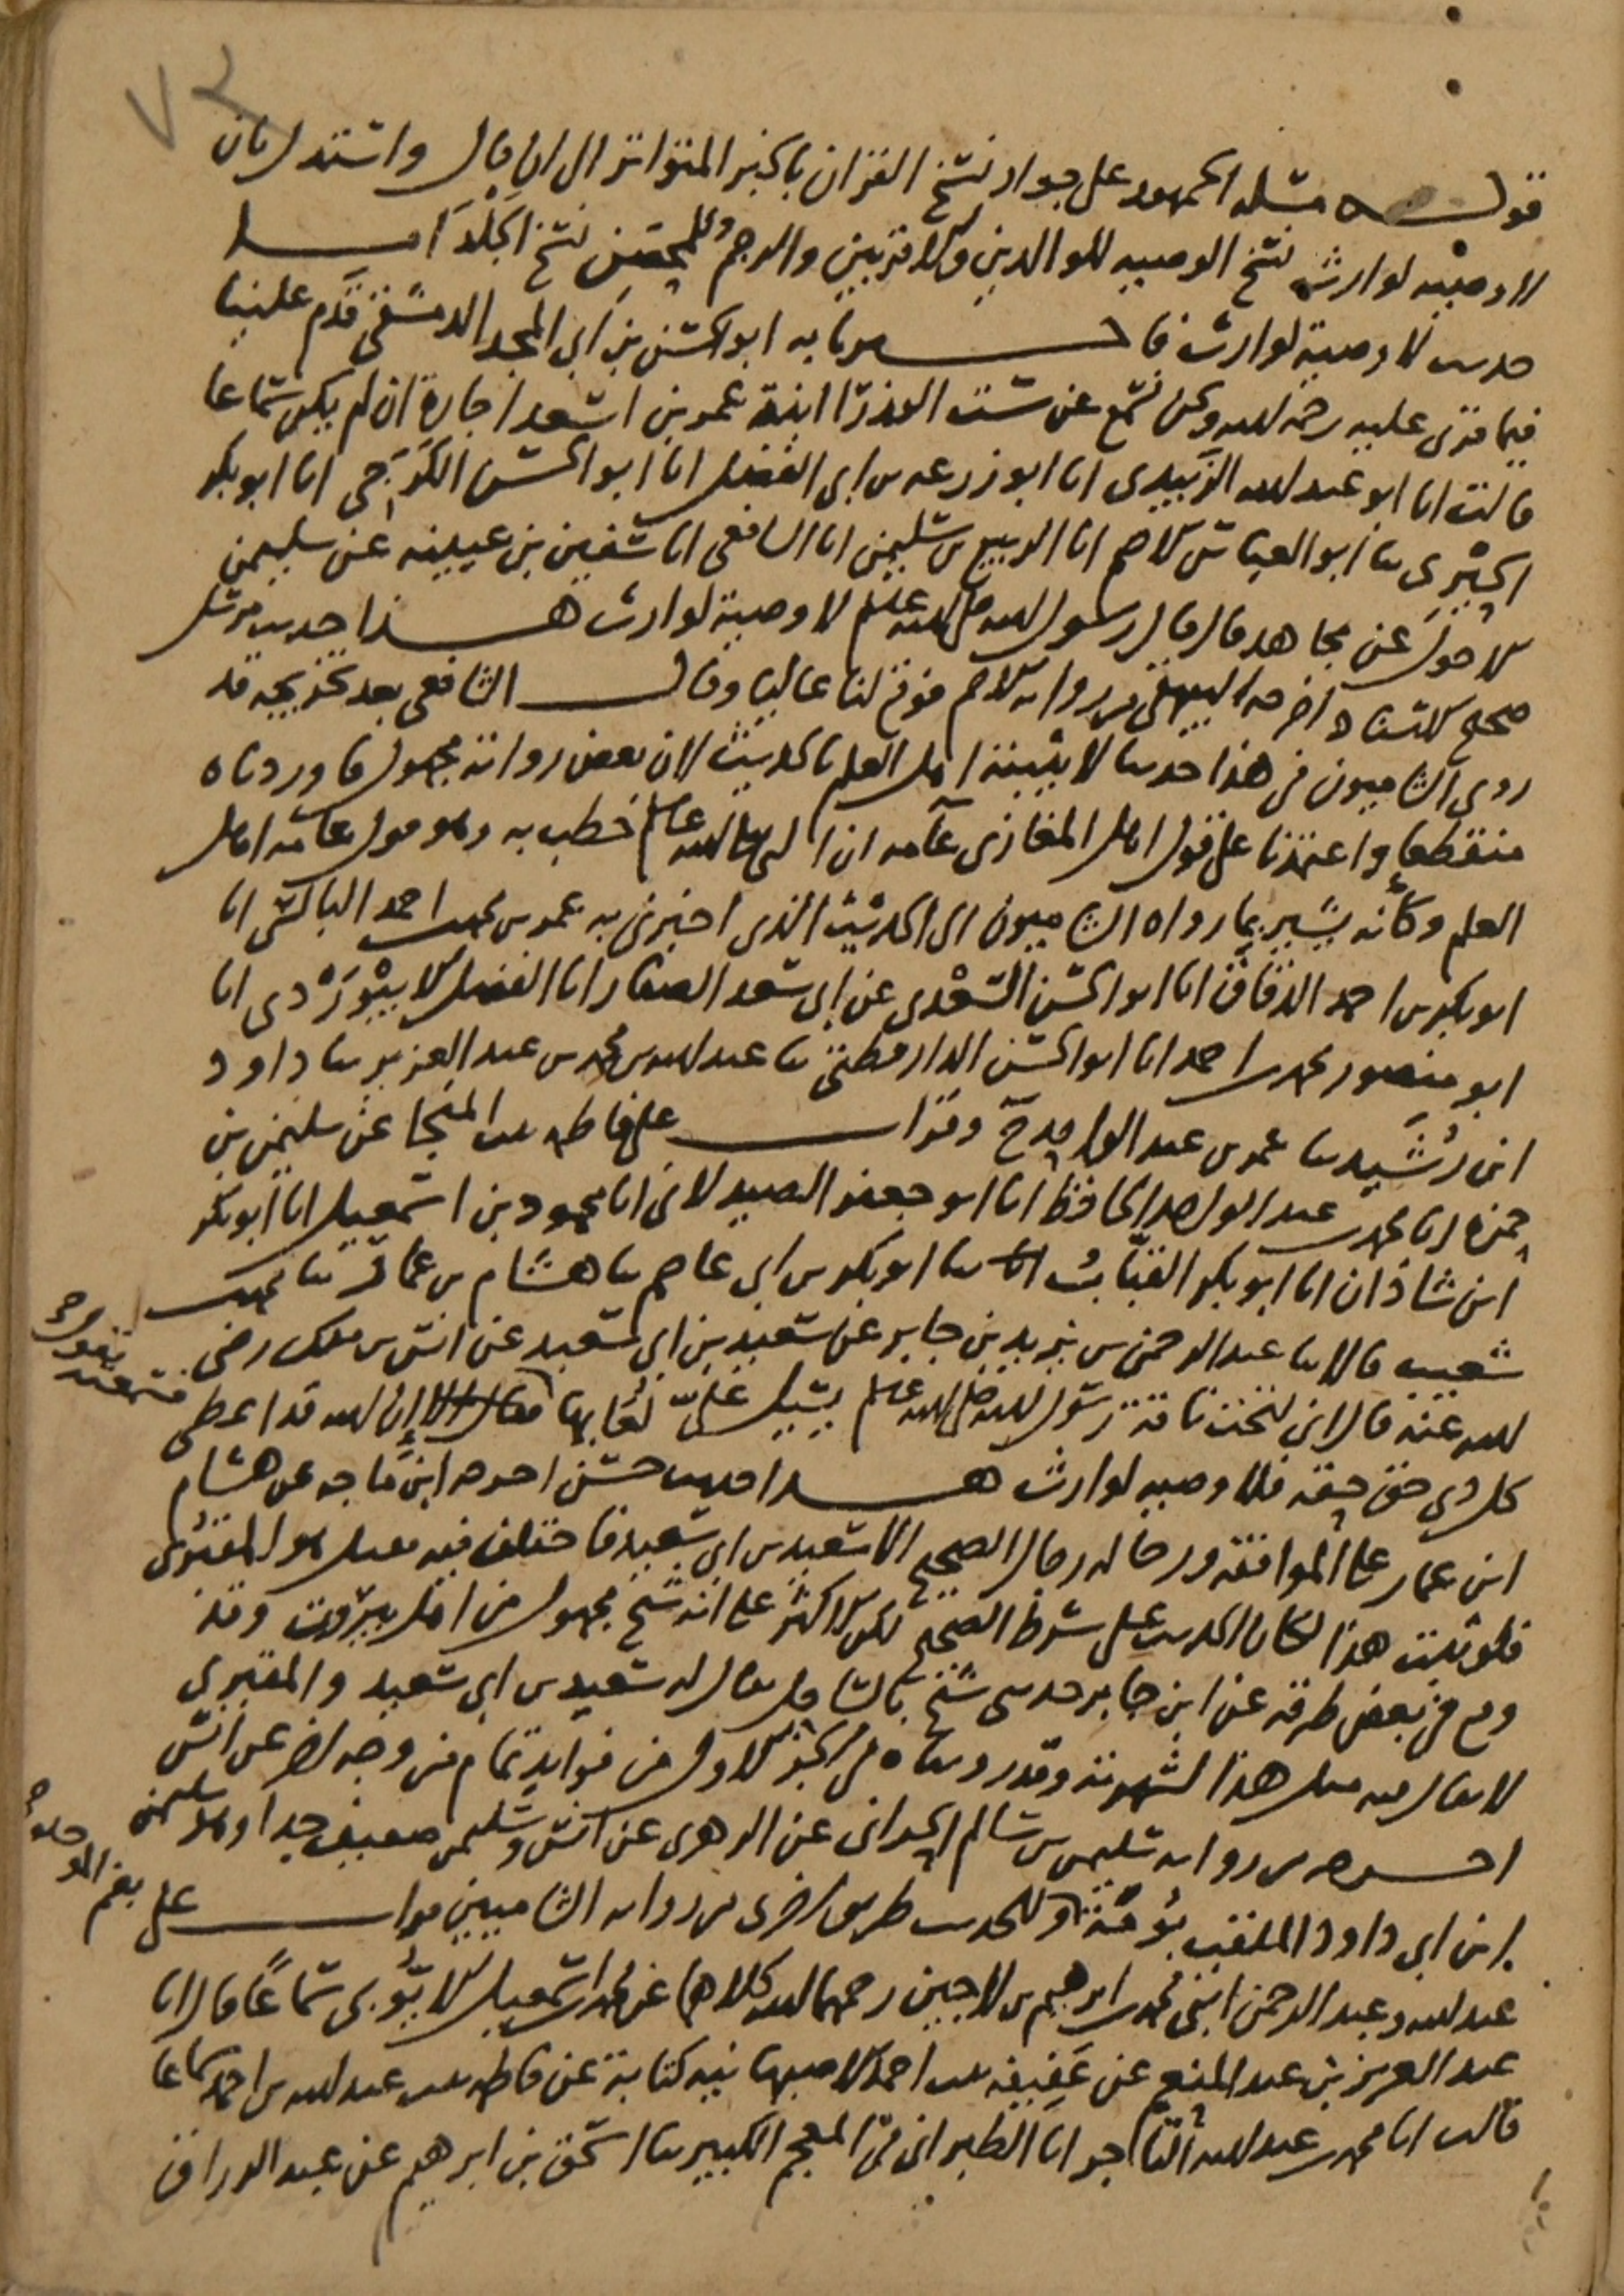 ٧٣
قوله مسله الجمهور على جواز نسخ القران بالخبر المتواتر الى ان قال واستدل بان
لا وصيه لوارث نسخ الوصيه للوالدين والاقربين والرجم للمحصن نسخ الجلد اما
حديث لا وصية لوارث فاخبرنا به ابو الحسن بن ابي المجد الدمشقي قدم علينا
فيما قرئ عليه رحمه الله ونحن نسمع عن ست الوزرا ابنة عمر بن اسعد اجازة ان لم يكن سماعا
قالت انا ابو عبد الله الزبيدي انا ابو زرعه بن ابي الفضل انا ابو الحسن الكرجي انا ابو بكر
الحيري ثنا ابو العباس الاصم انا الربيع بن سليمن انا الشافعي انا سفين بن عيينه عن سليمن
الاحول عن مجاهد قال قال رسول الله صلى الله عليه وسلم لا وصية لوارث هذا حديث مرسل
صحيح الاسناد اخرجه البيهقي من رواية الاصم فوقع لنا عاليا وقال الشافعي بعد تخريجه قد
روى الشاميون في هذا حديثا لا يثبته اهل العلم بالحديث لان بعض رواته مجهول فاوردناه
منقطعا واعتمدنا على قول اهل المغازي عامه ان النبي صلى الله عليه وسلم خطب به وهو قول عامه اهل
العلم وكأنه يشير بما رواه الشاميون الى الحديث الذي اخبرني به عمر بن محمد بن احمد البالسي انا
ابو بكر بن احمد الدقاق انا ابو الحسن السعدي عن ابي سعد الصفار انا الفضل الابيوردي انا
ابو منصور محمد بن احمد انا ابو الحسن الدارقطني ثنا عبد الله بن محمد بن عبد العزيز ثنا داود
ابن رشيد ثنا عمر بن عبد الواحد ح وقرات على فاطمه بنت المنجا عن سليمن بن
حمزه انا محمد بن عبد الواحد الحافظ انا ابو جعفر الصيدلاني انا محمود بن اسمعيل انا ابو بكر
ابن شاذان انا ابو بكر القباب ثنا ابو بكر بن ابي عاصم ثنا هشام بن عمار ثنا محمد بن
شعيب قالا ثنا عبد الرحمن بن يزيد بن جابر عن سعيد بن ابي سعيد عن انس بن ملك رضي
الله عنه قال اني لتحت ناقة رسول الله صلى الله عليه وسلم يسيل علي لعابها فسمعته يقول ان الله قد اعطى
كل ذي حق حقه فلا وصيه لوارث هذا حديث حسن اخرجه ابن ماجه عن هشام
ابن عمار على الموافقه ورجاله رجال الصحيح الا سعيد بن ابي سعيد فاختلف فيه فقيل هو المقبري
فلو ثبت هذا لكان الحديث على شرط الصحيح لكن الاكثر على انه شيخ مجهول من اهل بيروت وقد
وقع في بعض طرقه عن ابن جابر حدثني شيخ بالساحل يقال له سعيد بن ابي سعيد والمقبري
لا يقال فيه مثل هذا لشهرته وقد رويناه في الجزء الاول من فوايد تمام من وجه اخر عن انس
اخرجه من رواية سليمن بن سالم الحراني عن الزهري عن انس وسليمن ضعيف جدا وهو سليمن
ابن ابي داود الملقب بومة وللحديث طريق اخرى من رواية الشاميين قرات على
بضم الموحده
عبد الله وعبد الرحمن ابني محمد بن ابرهيم بن لاجين رحمهما الله كلاهما عن محمد بن اسمعيل الايوبي سماعا قال انا
عبد العزيز بن عبد المنعم عن عفيفه بنت احمد الاصبهانيه كتابة عن فاطمه بنت عبد الله بن احمد سماعا
قالت انا محمد بن عبد الله التاجر انا الطبراني في المعجم الكبير ثنا اسحق بن ابرهيم عن عبد الرزاق